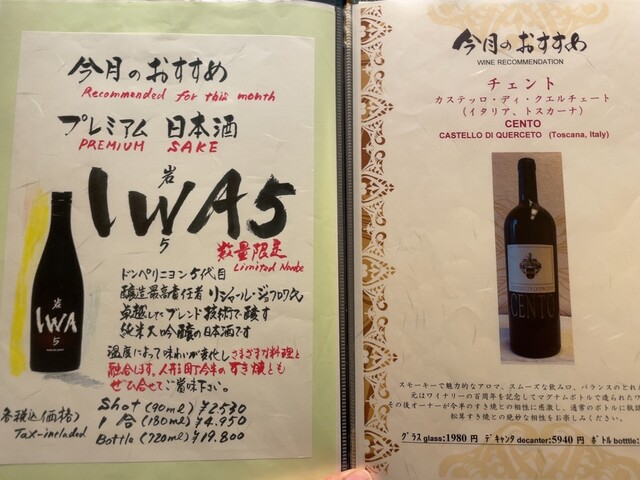 今月のおすすめ
Recommended for this month
プレミアム 日本酒
PREMIUM SAKE
岩
IWA5
5
数量限定
Limited
ドンペリニヨン5代目
醸造最高責任者 リシャール・ジョフロワ氏
卓越したブレンド技術で醸す
純米大吟醸の日本酒です
温度によって味わいが変化しさまざまな料理と
融合します。人形町今半のすき焼とも
ぜひ合せてご賞味下さい。
各税込価格)
Tax-included
Shot (90ml) ¥2,530
1合 (180ml) ¥4,950
Bottle (720ml) ¥19,800
岩
IWA
5
今月のおすすめ
WINE RECOMMENDATION
チェント
カステッロ・ディ・クエルチェート
(イタリア、トスカーナ)
CENTO
CASTELLO DI QUERCETO (Toscana, Italy)
CENTO
スモーキーで魅力的なアロマ、スムーズな飲み口、バランスのとれ
元はワイナリーの百周年を記念してマグナムボトルで造られたワ
その後オーナーが今半のすき焼との相性に感激し、通常のボトルに
松茸すき焼との絶妙な相性をお楽しみください。
グラス glass:1980 円 デキャンタ decanter:5940 円 ボトル botttle: